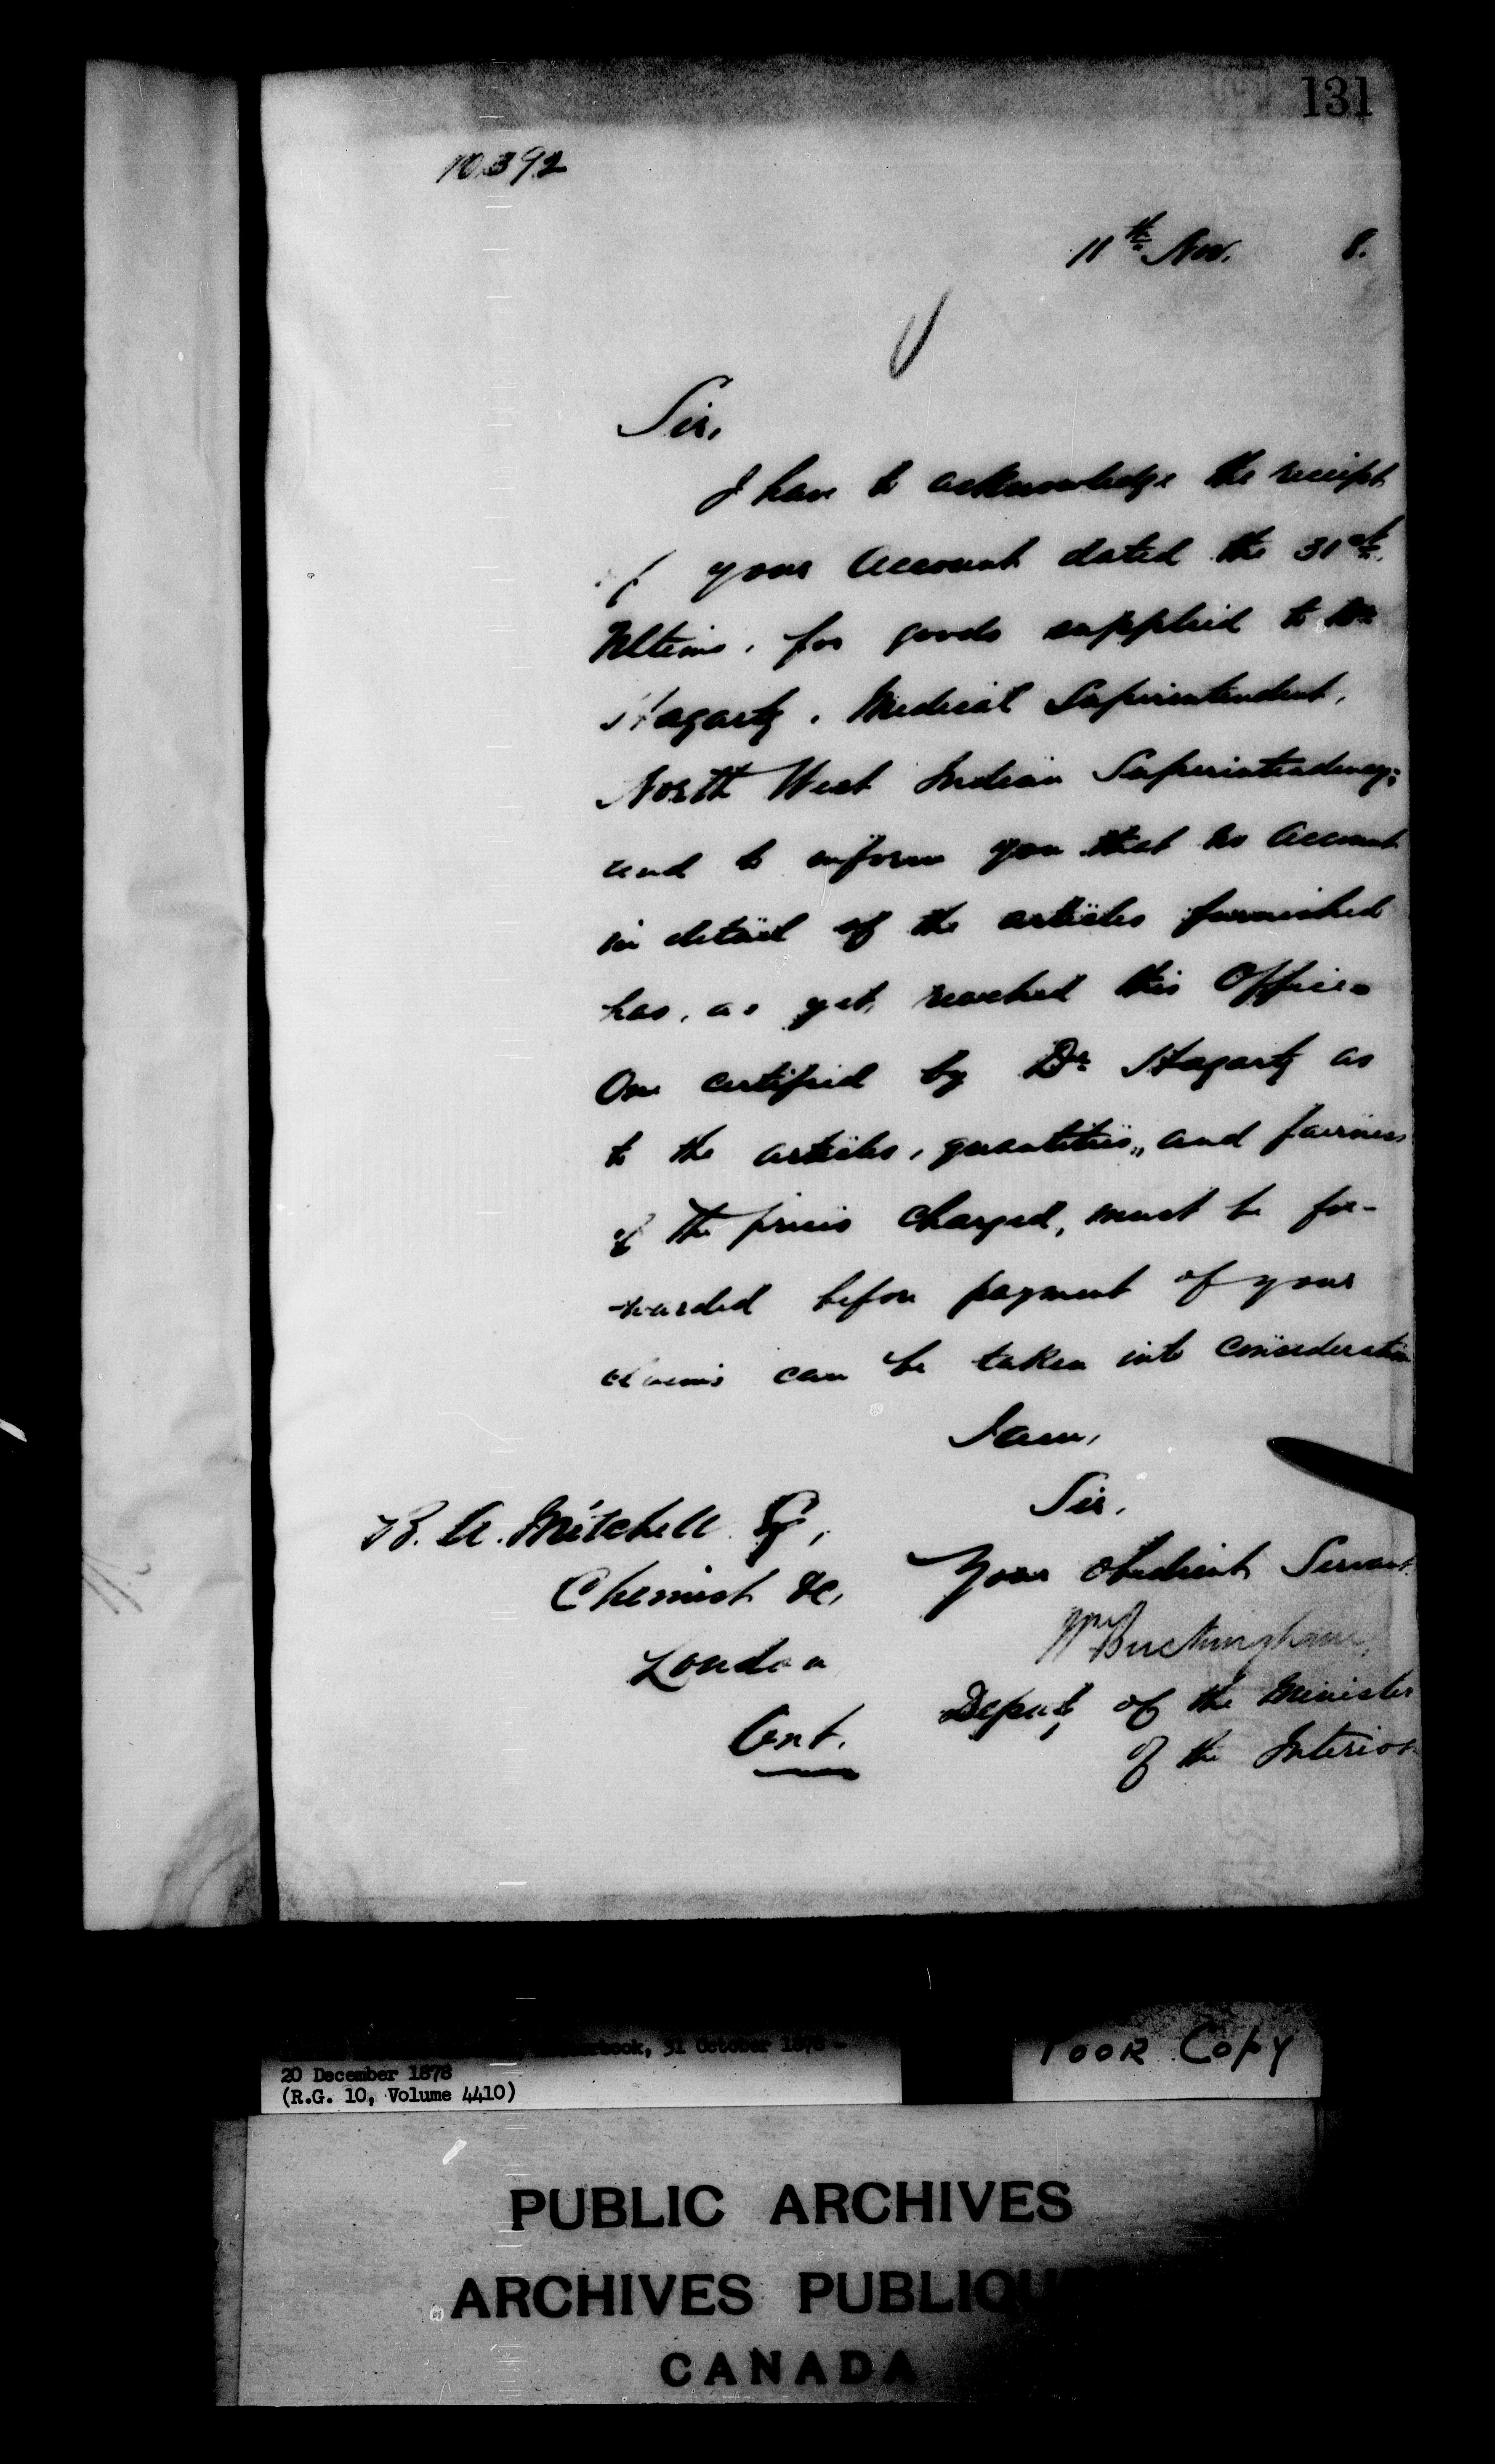 131
10.392
11th Nov. 8.
Sir,
I have to acknowledge the receipt
of your Account dated the 31st
Ultimo, for goods supplied to Dr
Hagarty, Medical Superintendent,
North West Indian Superintendency;
and to inform you that no account
in detail of the articles furnished
has, as yet, reached this Office.
One certified by Dr Hagarty as
to the articles, quantities, and fairness
of the prices charged, must be for-
warded before payment of your
claims can be taken into consideration
I am,
Sir,
B. A. Mitchell Esq,
Your obedient Servant
Chemist &c,
Wm Buckingham,
London
Deputy of the Minister
Ont.
of the Interior
book, 31 October 1878 -
20 December 1878
(R.G. 10, Volume 4410)
Poor Copy
PUBLIC ARCHIVES
ARCHIVES PUBLIQU
CANADA